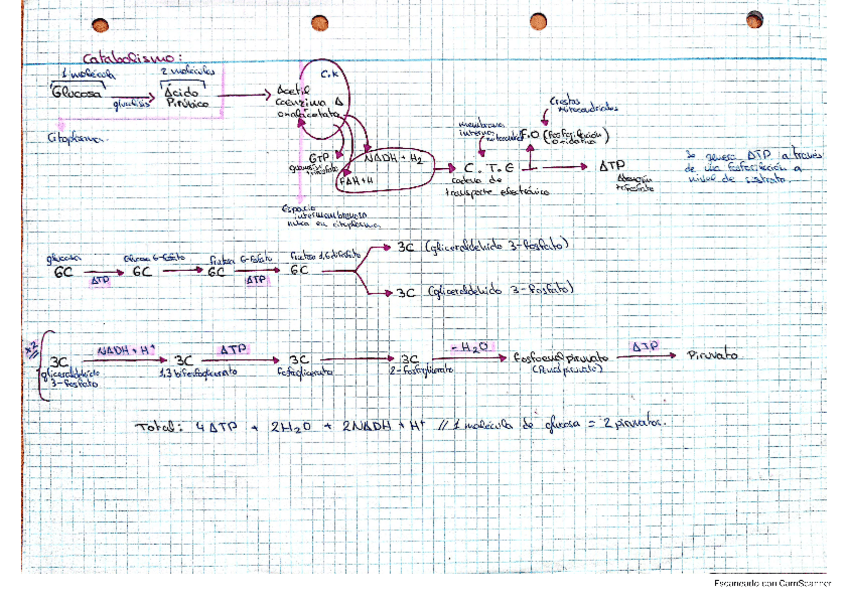 Catabolismo:
1 molécula
2 moléculas
C.K
Glucosa
glucólisis
Ácido
Pirúbico
Acetil
coenzima A
oxalacetato
Citoplasma.
Crestas
mitocondriales
membrana
interna
mitocondrial
F.O (fosforilación
oxidativa)
GTP
NADH + H2
FAH+H
C. T. E
cadena de
transporte electrónico
ATP
Adenosín
trifosfato
Se genera ATP a través
de vía fosforilación a
nivel de sustrato.
Espacio
intermembranoso
nunca en citoplasma.
glucosa
Glucosa 6-fosfato
fructosa 6-fosfato
fructosa 1,6 difosfato
6C
ATP
6C
6C
ATP
6C
3C (gliceraldehido 3-fosfato)
3C (gliceraldehido 3-fosfato)
x2
3C
gliceraldehido
3-fosfato
NADH + H+
3C
1,3 bifosfoglicerato
ATP
3C
fosfoglicerato
3C
2-fosfoglicerato
-H2O
fosfoenolpiruvato
ATP
Piruvato
Total: 4ATP + 2H2O + 2NADH + H+ // 1 molécula de glucosa = 2 piruvatos.
Escaneado con CamScanner